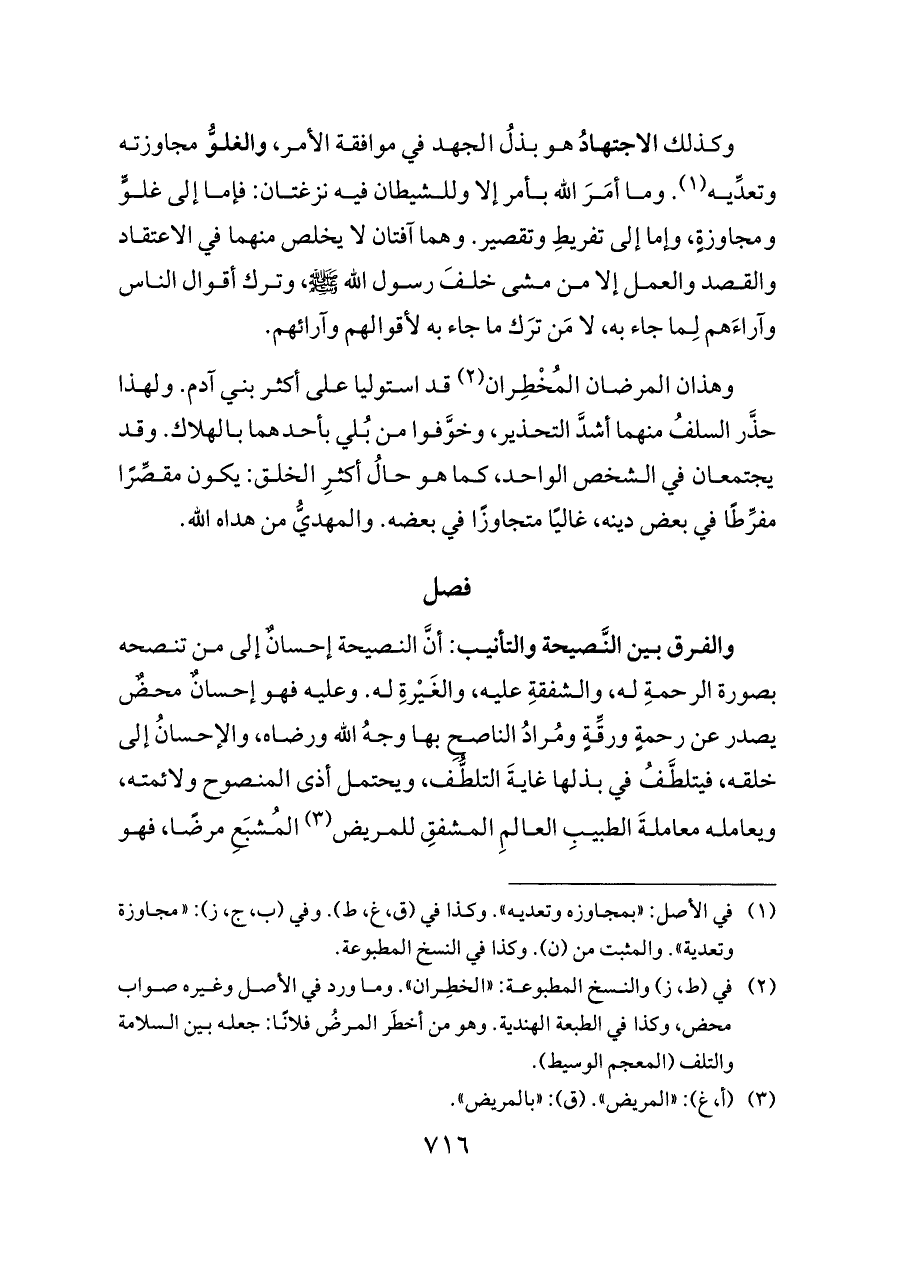 وكذلك الاجتهادُ هو بذلُ الجهد في موافقة الأمر، والغلوُّ مجاوزته
وتعدِّيه(١). وما أمَرَ الله بأمر إلا وللشيطان فيه نزغتان: فإما إلى غلوٍّ
ومجاوزةٍ، وإما إلى تفريطِ وتقصير. وهما آفتان لا يخلص منهما في الاعتقاد
والقصد والعمل إلا من مشى خلفَ رسول الله ﷺ، وترك أقوال الناس
وآراءَهم لِما جاء به، لا مَن ترَك ما جاء به لأقوالهم وآرائهم.
وهذان المرضان المُخْطِران(٢) قد استوليا على أكثر بني آدم. ولهذا
حذَّر السلفُ منهما أشدَّ التحذير، وخوَّفوا من بُلي بأحدهما بالهلاك. وقد
يجتمعان في الشخص الواحد، كما هو حالُ أكثرِ الخلق: يكون مقصِّرًا
مفرِّطًا في بعض دينه، غاليًا متجاوزًا في بعضه. والمهديُّ من هداه الله.
فصل
والفرق بين النَّصيحة والتأنيب: أنَّ النصيحة إحسانٌ إلى من تنصحه
بصورة الرحمةِ له، والشفقةِ عليه، والغَيْرةِ له. وعليه فهو إحسانٌ محضٌ
يصدر عن رحمةٍ ورقَّةٍ ومُرادُ الناصحِ بها وجهُ الله ورضاه، والإحسانُ إلى
خلقه، فيتلطَّفُ في بذلها غايةَ التلطُّف، ويحتمل أذى المنصوح ولائمته،
ويعامله معاملةَ الطبيبِ العالمِ المشفقِ للمريض(٣) المُشبَعِ مرضًا، فهو
(١) في الأصل: «بمجاوزه وتعديه». وكذا في (ق، غ، ط). وفي (ب، ج، ز): «مجاوزة
وتعدية». والمثبت من (ن). وكذا في النسخ المطبوعة.
(٢) في (ط، ز) والنسخ المطبوعة: «الخطِران». وما ورد في الأصل وغيره صواب
محض، وكذا في الطبعة الهندية. وهو من أخطَر المرضُ فلانًا: جعله بين السلامة
والتلف (المعجم الوسيط).
(٣) (أ، غ): «المريض». (ق): «بالمريض».
٧١٦